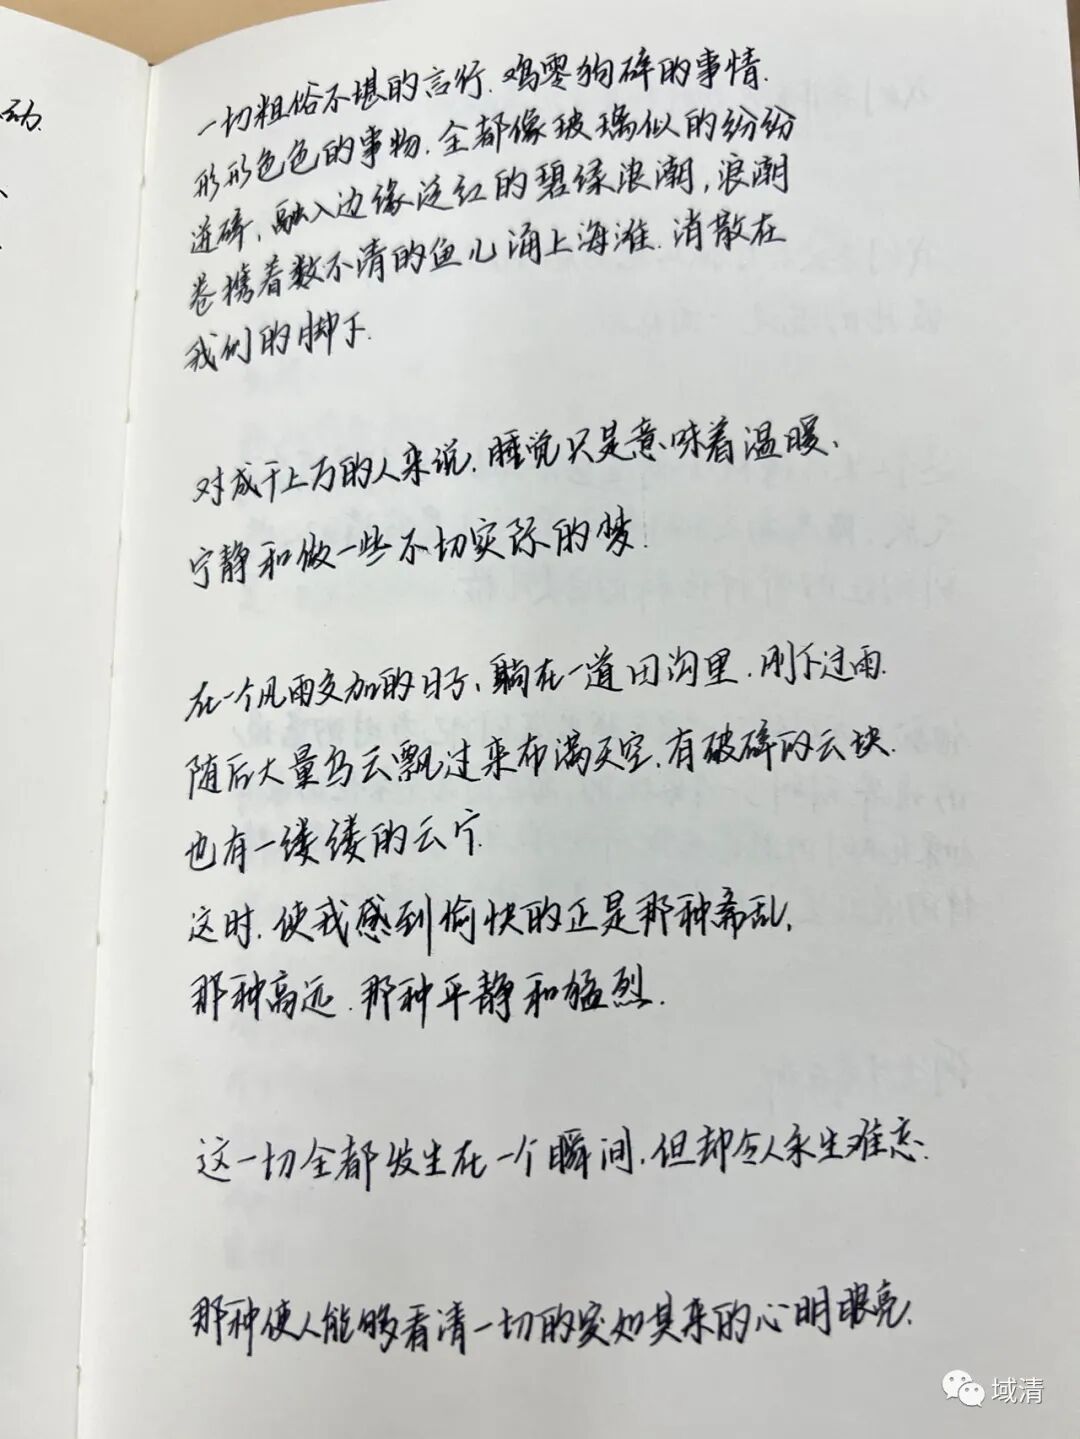 动.
一切粗俗不堪的言行.鸡零狗碎的事情.
形形色色的事物.全都像玻璃似的纷纷
迸碎、融入边缘泛红的碧绿浪潮,浪潮
卷携着数不清的鱼儿涌上海滩.消散在
我们的脚下.
对成千上万的人来说.睡觉只是意味着温暖、
宁静和做一些不切实际的梦.
在一个风雨交加的日子、躺在一道田沟里.刚下过雨.
随后大量乌云飘过来布满天空.有破碎的云块.
也有一缕缕的云片.
这时.使我感到愉快的正是那种紊乱,
那种高远.那种平静和猛烈.
这一切全都发生在一个瞬间.但却令人永生难忘.
那种使人能够看清一切的突如其来的心明眼亮.
域清